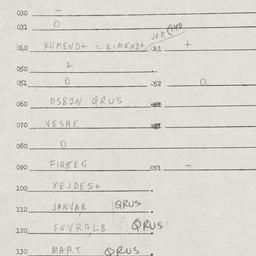 030 —
031 0
040 KUMENDT = KIMENDT 041 +
050 1
051 0 052 0
060 0582N QRUS
070 VESNE
080 0
090 FIRTEG 091 —
100
110 JANVAR QRUS
120 FEVRAL8 QRUS
130 MART QRUS